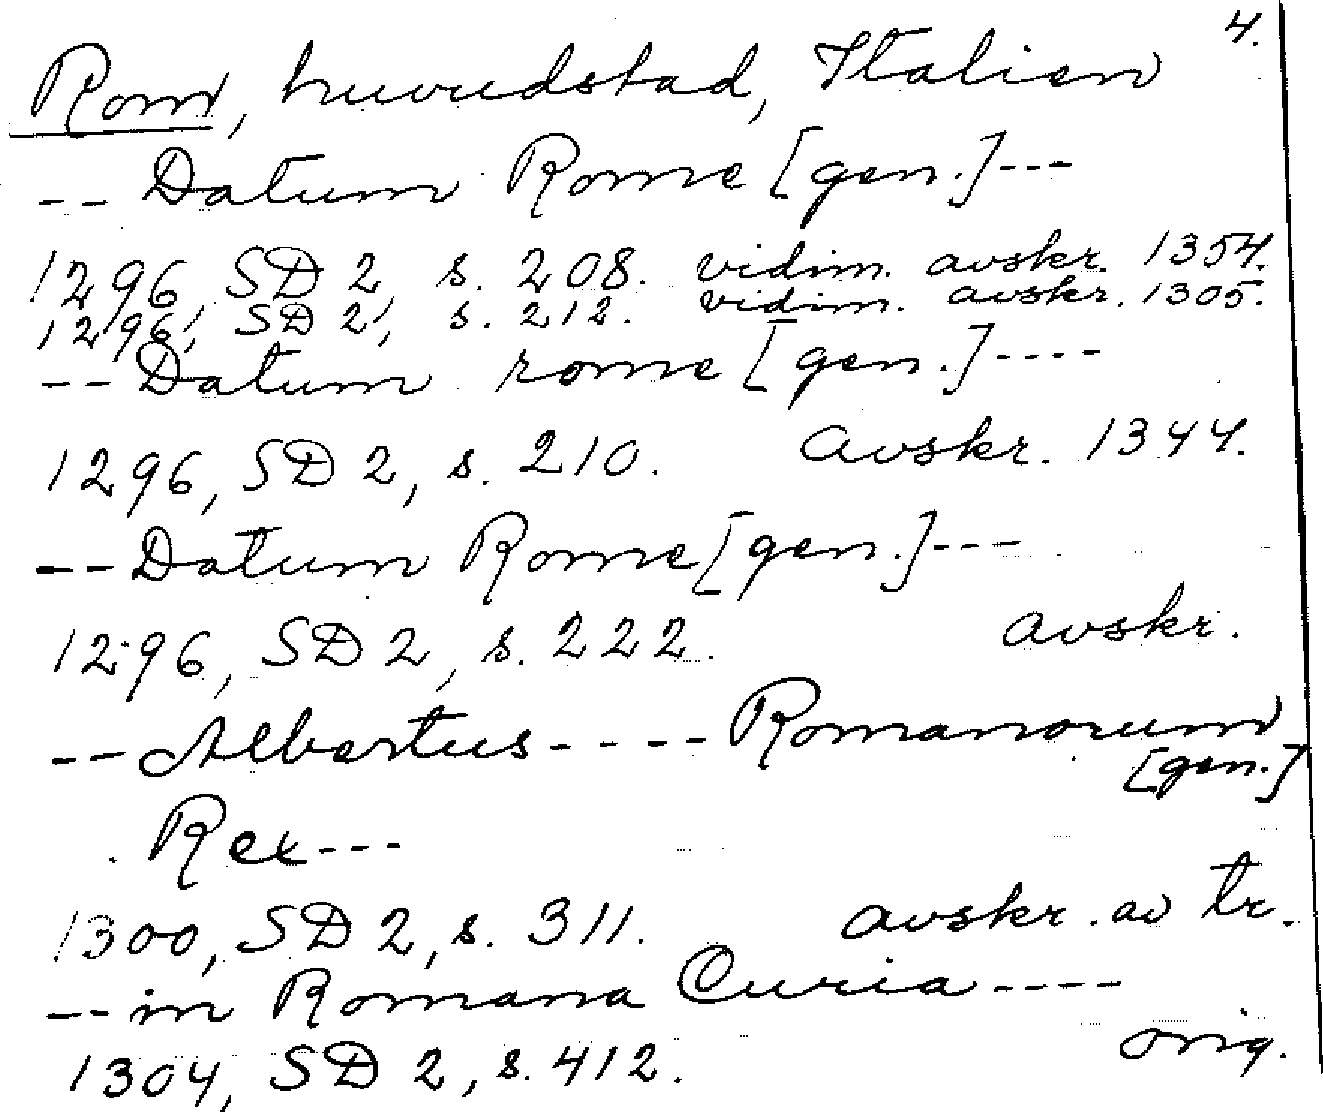 4.
Rom, huvudstad, Italien
-- Datum Rome [gen.] ---
1296, SD 2, s. 208. vidim. avskr. 1354.
1296, SD 2, s. 212. vidim. avskr. 1305.
-- Datum rome [gen.] ----
1296, SD 2, s. 210. avskr. 1344.
-- Datum Rome [gen.] ---
1296, SD 2, s. 222. avskr.
-- Albertus ---- Romanorum
[gen.]
Rex ---
1300, SD 2, s. 311. avskr. av tr.
-- in Romana Curia ----
1304, SD 2, s. 412. orig.